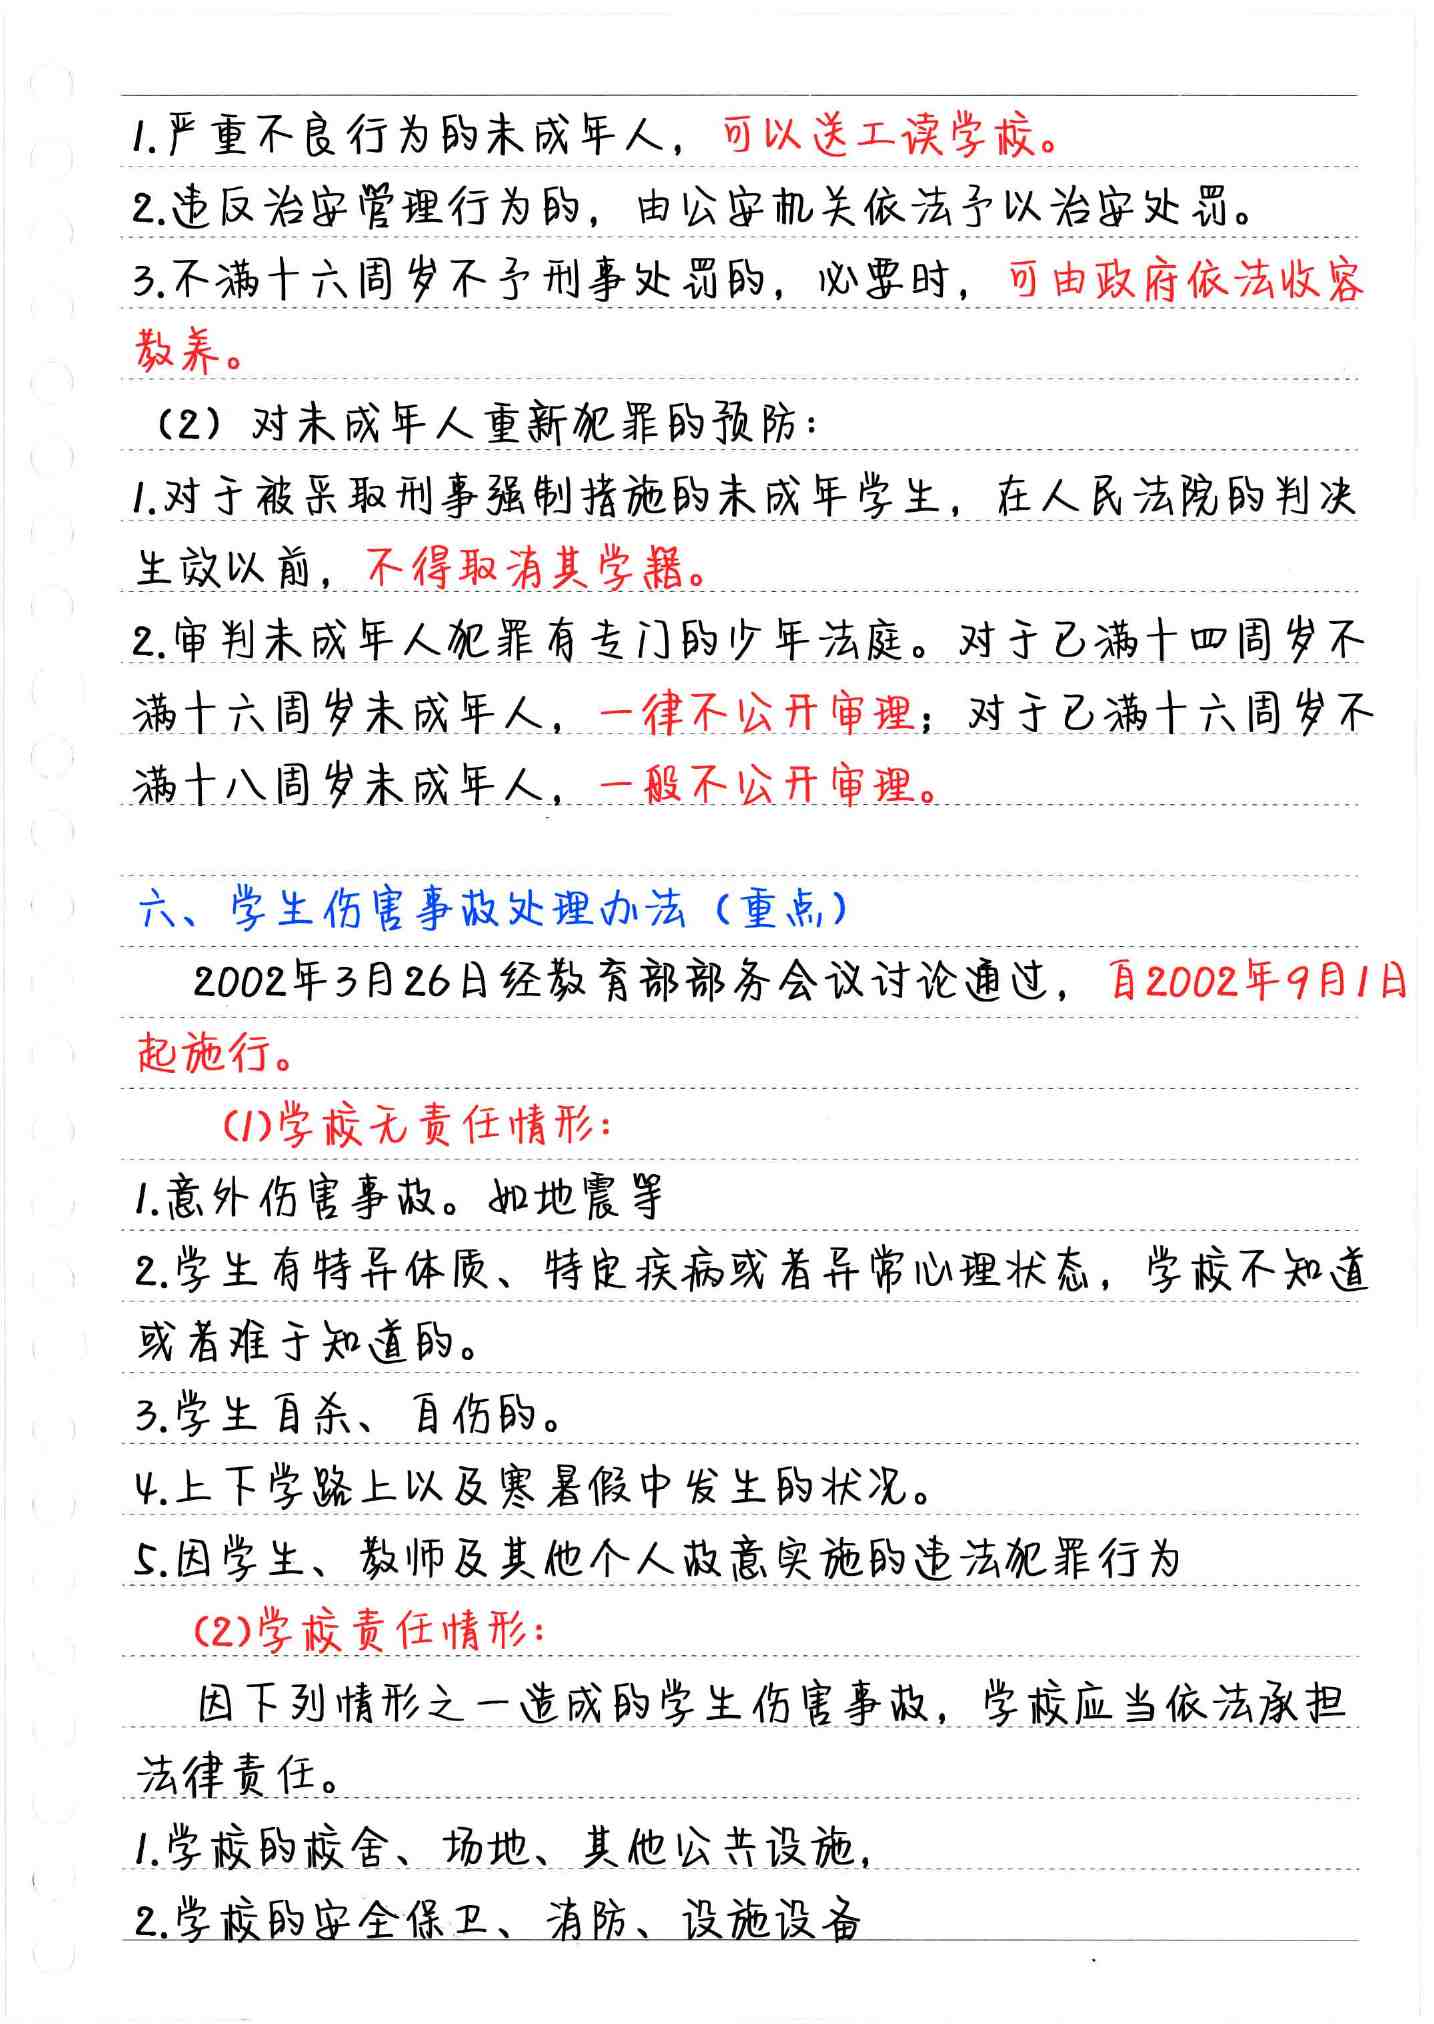 1.严重不良行为的未成年人，可以送工读学校。
2.违反治安管理行为的，由公安机关依法予以治安处罚。
3.不满十六周岁不予刑事处罚的，必要时，可由政府依法收容
教养。
（2）对未成年人重新犯罪的预防：
1.对于被采取刑事强制措施的未成年学生，在人民法院的判决
生效以前，不得取消其学籍。
2.审判未成年人犯罪有专门的少年法庭。对于已满十四周岁不
满十六周岁未成年人，一律不公开审理；对于已满十六周岁不
满十八周岁未成年人，一般不公开审理。
六、学生伤害事故处理办法（重点）
2002年3月26日经教育部部务会议讨论通过，自2002年9月1日
起施行。
(1)学校无责任情形：
1.意外伤害事故。如地震等
2.学生有特异体质、特定疾病或者异常心理状态，学校不知道
或者难于知道的。
3.学生自杀、自伤的。
4.上下学路上以及寒暑假中发生的状况。
5.因学生、教师及其他个人故意实施的违法犯罪行为
(2)学校责任情形：
因下列情形之一造成的学生伤害事故，学校应当依法承担
法律责任。
1.学校的校舍、场地、其他公共设施，
2.学校的安全保卫、消防、设施设备